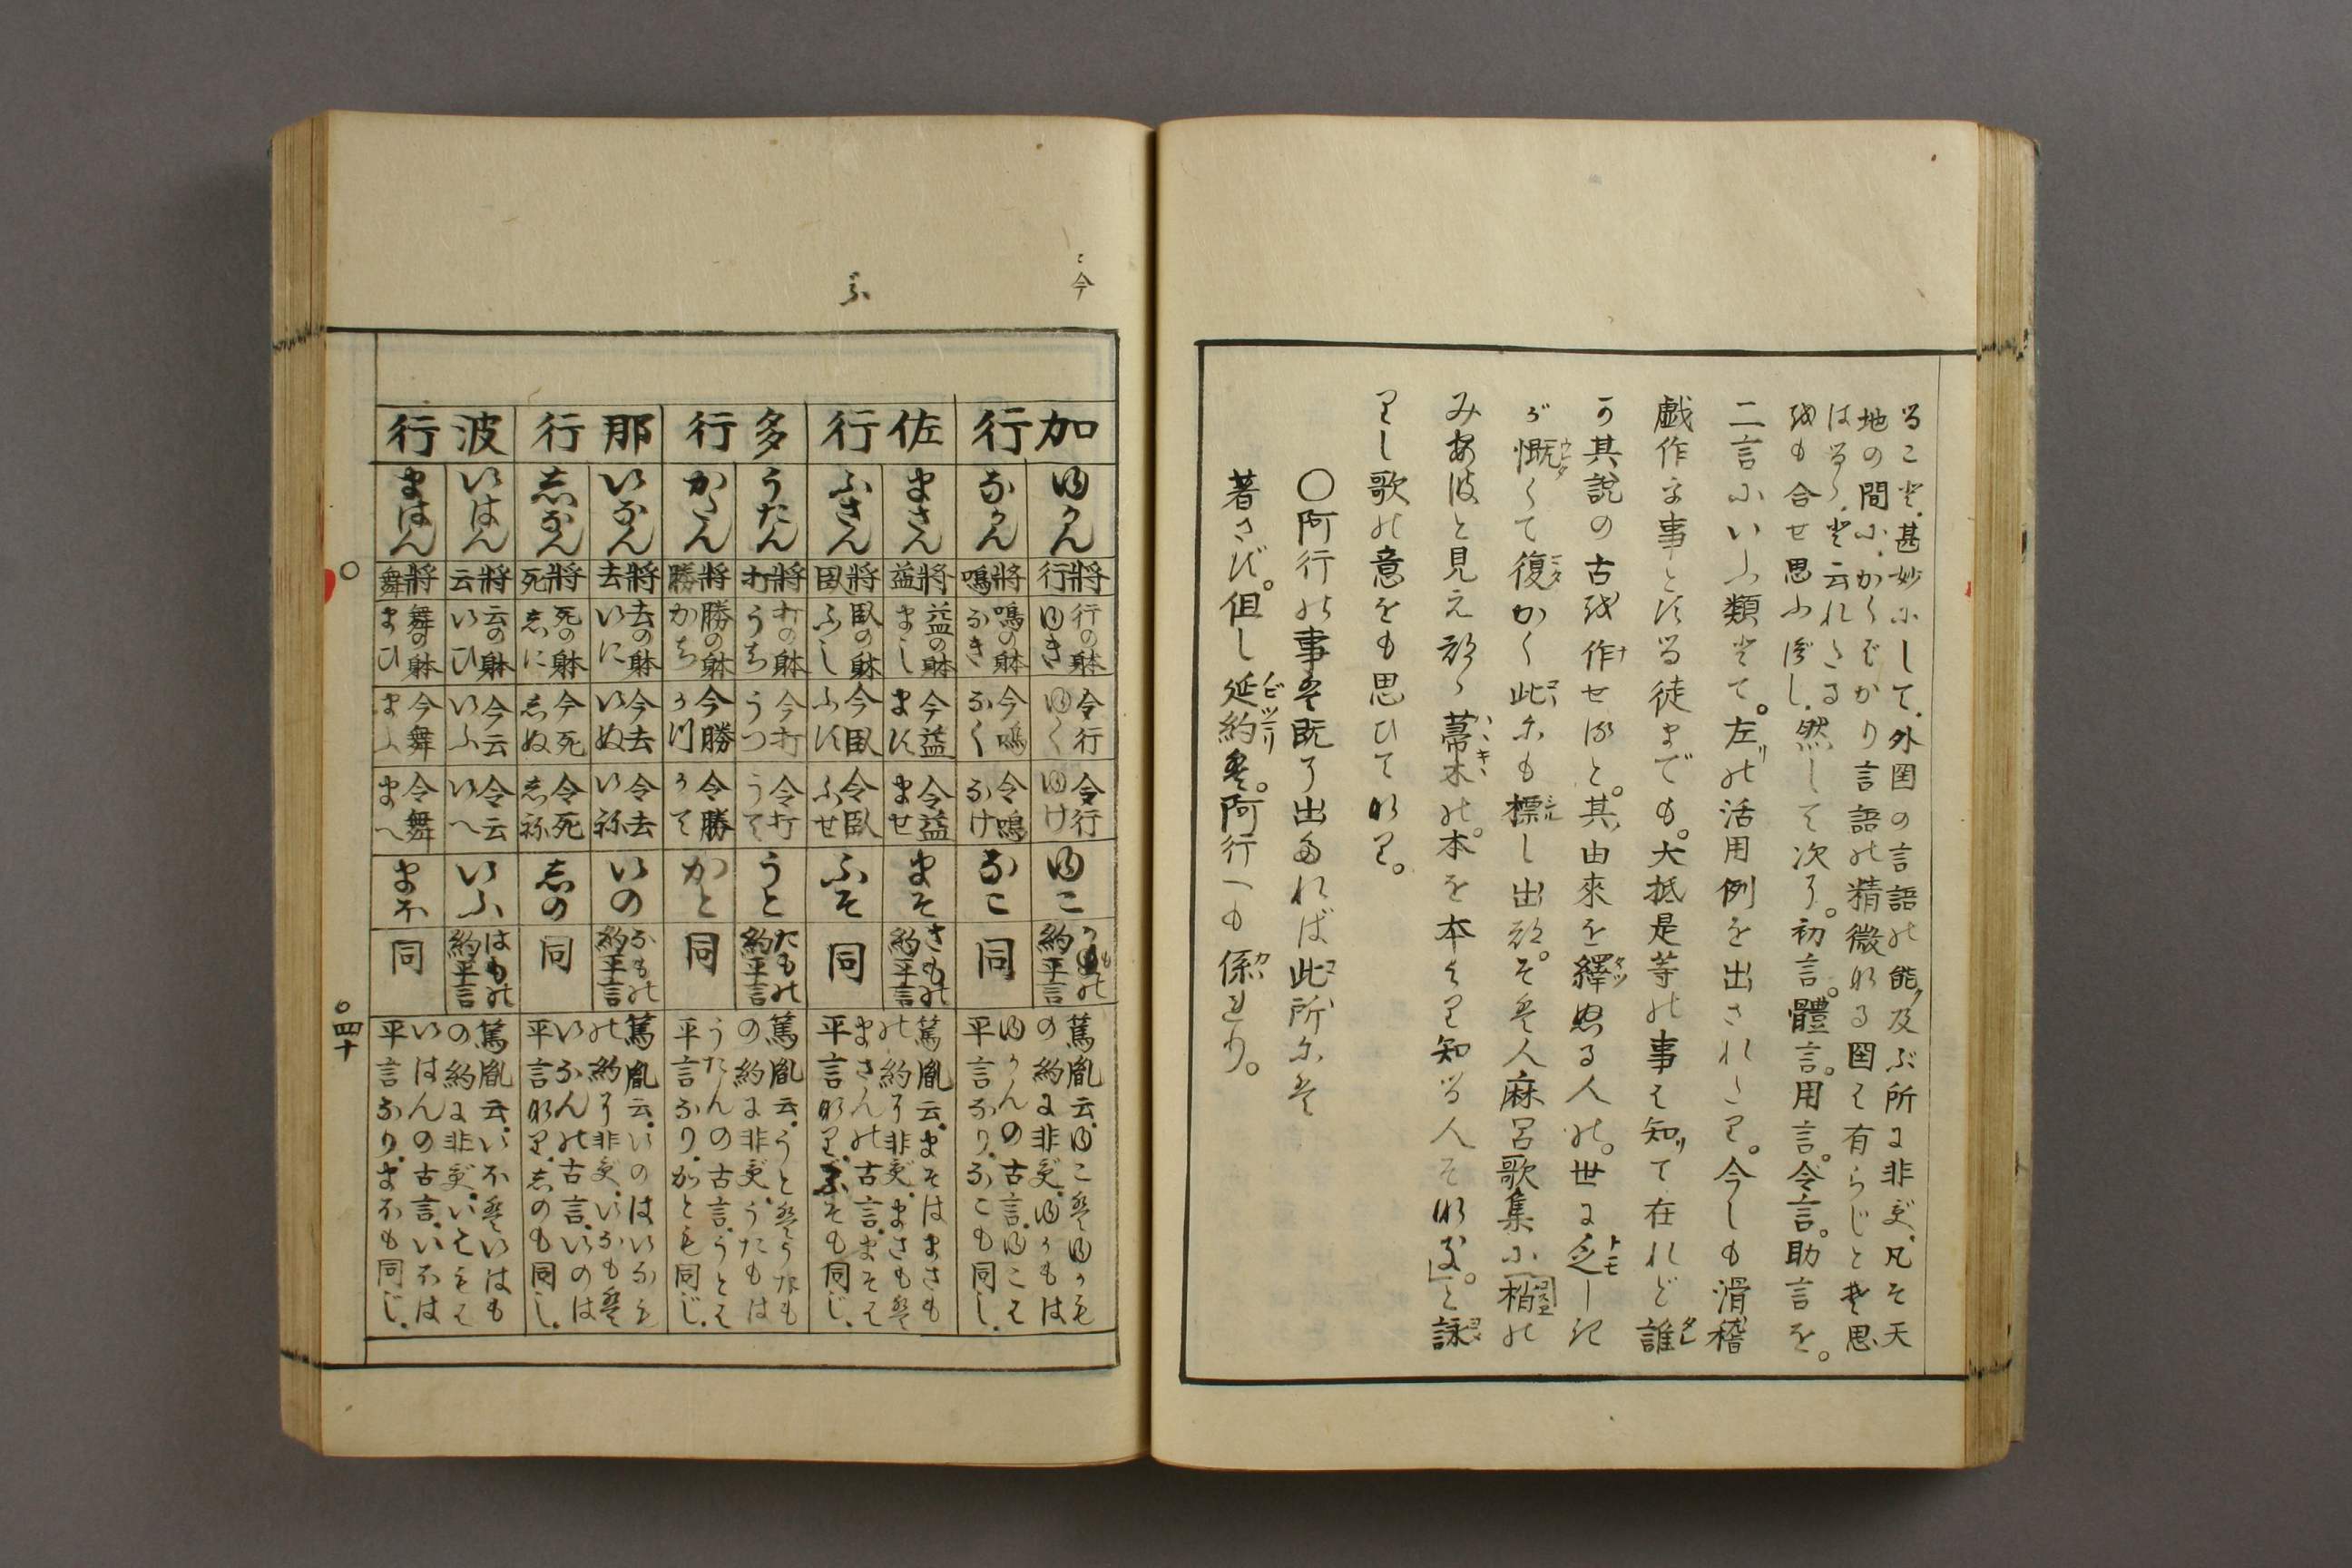 るこそ甚妙にして外国の言語の能及ぶ所に非ず凡そ天
地の間にかくばかり言語の精微なる国は有らじとぞ思
はるゝ
と云れたる
をも合せ思ふべし然して次に初言。體言。用言。令言。助言を。
二言にいふ類とて。左の活用例を出されたり。今しも滑稽
戯作の事とする徒までも。大抵是等の事は知りて在れど誰
か其説の古を作せると。其由來を繹ぬる人の。世に乏しき
が慨くて復かく此にも標し出ぬ。そは人麻呂歌集に梢の
みあはと見えぬゝ蒂木の。本を本より知る人ぞなき。と詠
りし歌の意をも思ひてなり。
〇阿行の事は既に出たれば此所には
著さず。但し延約は。阿行へも係れり。
ゝ今
ふ
加行
佐行
多行
那行
波行
ゆかん
なかん
まさん
ふさん
うたん
かたん
いなん
志なん
いはん
まはん
將行
將鳴
將益
將臥
將打
將勝
將去
將死
將云
將舞
行の躰ゆき
鳴の躰なき
益の躰まし
臥の躰ふし
打の躰うち
勝の躰かち
去の躰いに
死の躰志に
云の躰いひ
舞の躰まひ
今行ゆく
今鳴なく
今益ます
今臥ふす
今打うつ
今勝かつ
今去いぬ
今死志ぬ
今云いふ
今舞まふ
令行ゆけ
令鳴なけ
令益ませ
令臥ふせ
令打うて
令勝かて
令去いね
令死志ね
令云いへ
令舞まへ
ゆこ
なこ
まそ
ふそ
うと
かと
いの
志の
いふ
まほ
かもの約平言
同
さもの約平言
同
たもの約平言
同
なもの約平言
同
はもの約平言
同
篤胤云。ゆこはゆかも
の約に非ず。ゆかもは
ゆかんの古言。ゆこは
平言なり。なこも同じ。
篤胤云。まそはまさも
の約に非ず。まさもは
まさんの古言。まそは
平言なり。ふそも同じ。
篤胤云。うとはうたも
の約に非ず。うたもは
うたんの古言。うとは
平言なり。かとも同じ。
篤胤云。いのはいなも
の約に非ず。いなもは
いなんの古言。いのは
平言なり。志のも同し。
篤胤云。いほはいはも
の約に非ず。いはもは
いはんの古言。いほは
平言なり。まほも同じ。
〇
〇四十